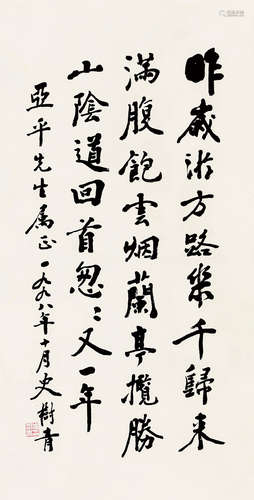 昨歲游方路幾千歸来
滿腹飽雲烟蘭亭攬勝
山陰道回首怱〻又一年
亞平先生属正一九九八年十月史樹青